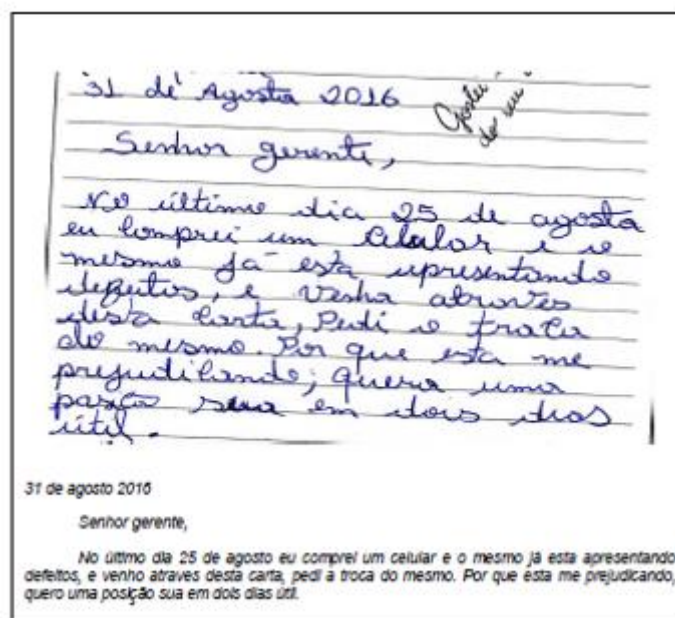 31 de Agosto 2016
Gostei
do seu
Senhor gerente,
No último dia 25 de agosto
eu comprei um celular e o
mesmo já está apresentando
defeitos, e venho atravéz
desta carta, Pedi a troca
do mesmo. Por que esta me
prejudicando; quero uma
sua em dois dias
útil.
31 de agosto 2016
Senhor gerente,
No último dia 25 de agosto eu comprei um celular e o mesmo já esta apresentando
defeitos, e venho atraves desta carta, pedi a troca do mesmo. Por que esta me prejudicando,
quero uma posição sua em dois dias útil.